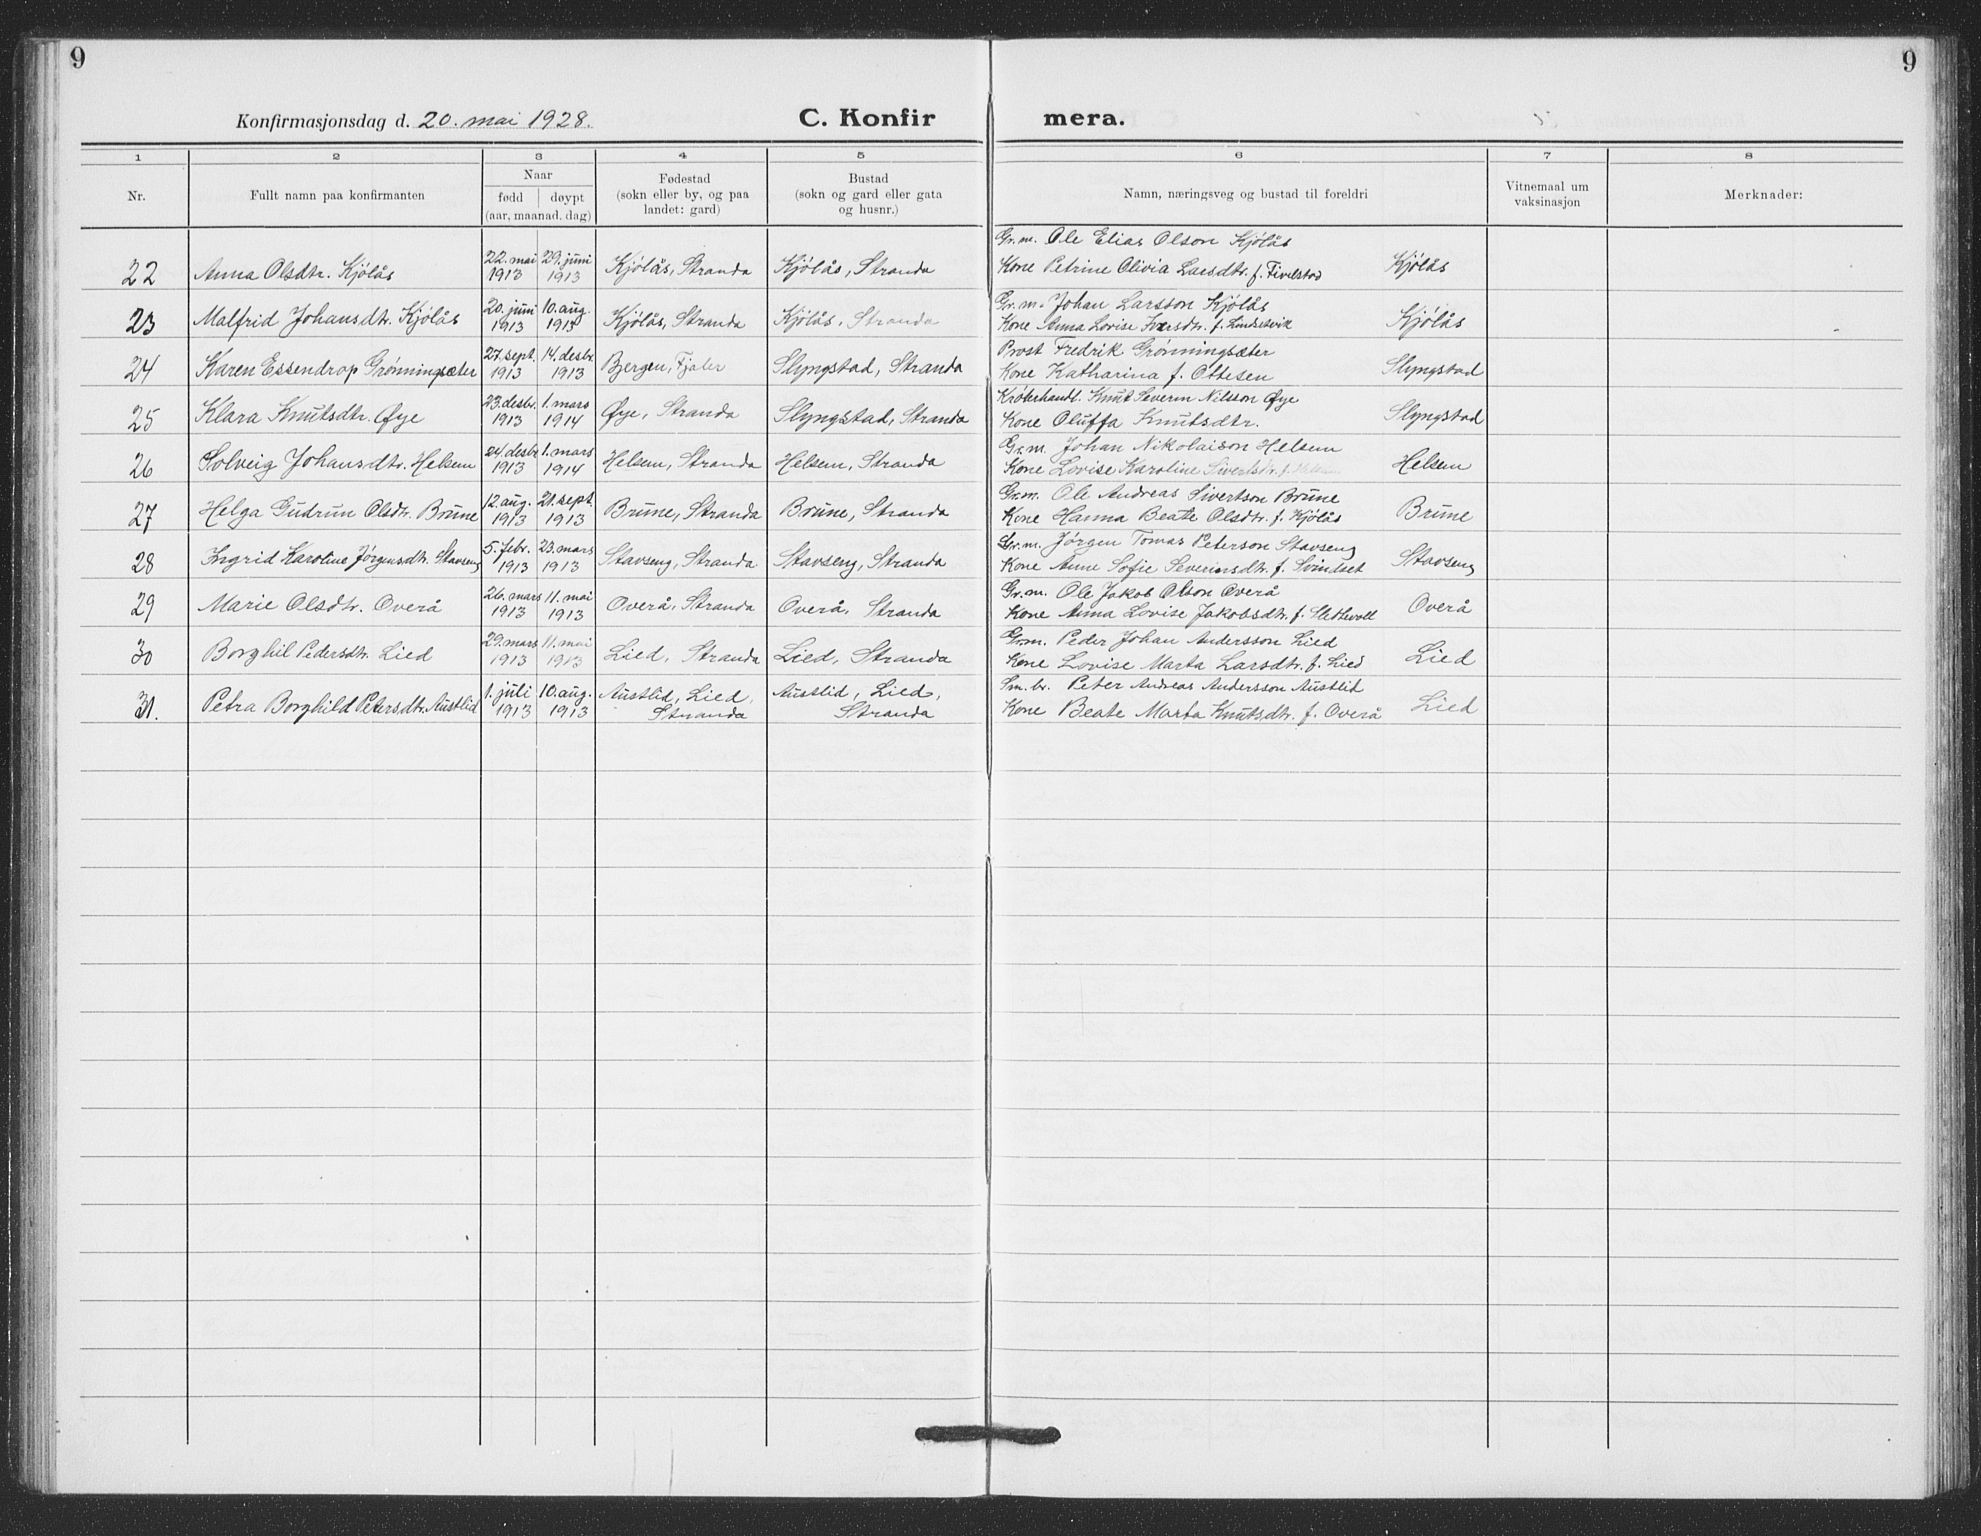 9
9
Konfirmasjonsdag d. 20. mai 1928.
C. Konfir mera.
1 2 3 4 5 6 7 8
Nr.
Fullt namn paa konfirmanten
Naar
fødd døypt
(aar, maanad. dag)
Fødestad
(sokn eller by, og paa
landet: gard)
Bustad
(sokn og gard eller gata
og husnr.)
Namn, næringsveg og bustad til foreldri
Vitnemaal um
vaksinasjon
Merknader:
22. mai 29. juni Gr.m. Ole Elias Olson Kjølås
22 Anna Olsdtr. Kjølås 1913 1913 Kjølås, Stranda Kjølås, Stranda Kone Petrine Olivia Larsdtr. f. Fivelstad Kjølås
20. juni 10. aug. Gr.m. Johan Larsson Kjølås
23 Malfrid Johansdtr. Kjølås 1913 1913 Kjølås, Stranda Kjølås, Stranda Kone Anna Lovise Iversdtr. f. Lindsetvik Kjølås
27. sept. 14. desbr. Prost Fredrik Grønningsæter
24 Karen Essendrop Grønningsæter 1913 1913 Bjergen, Fjaler Slyngstad, Stranda Kone Katharina f. Ottesen Slyngstad
23. desbr. 1. mars Krøterhandl. Knut Severin Nilsson Øye
25 Klara Knutsdtr. Øye 1913 1914 Øye, Stranda Slyngstad, Stranda Kone Oluffa Knutsdtr. Slyngstad
24. desbr. 1. mars Gr.m. Johan Nikolaison Helsem
26 Solveig Johansdtr. Helsem 1913 1914 Helsem, Stranda Helsem, Stranda Kone Lovise Karoline Sivertsdtr. f. Helsem
12. aug. 21. sept. Gr.m. Ole Andreas Sivertson Brune
27 Helga Gudrun Olsdtr. Brune 1913 1913 Brune, Stranda Brune, Stranda Kone Hanna Beate Olsdtr. f. Kjølås Brune
5. febr. 23. mars Gr.m. Jørgen Tomas Peterson Stavseng
28 Ingrid Karoline Jørgensdtr. Stavseng 1913 1913 Stavseng, Stranda Stavseng, Stranda Kone Anne Sofie Severinsdtr. f. Svindset Stavseng
26. mars 11. mai Gr.m. Ole Jakob Olson Overå
29 Marie Olsdtr. Overå 1913 1913 Overå, Stranda Overå, Stranda Kone Anna Lovise Jakobsdtr. f. Slettevoll Overå
29. mars 11. mai Gr.m. Peder Johan Andersson Lied
30 Borghil Pedersdtr. Lied 1913 1913 Lied, Stranda Lied, Stranda Kone Lovise Marta Larsdtr. f. Lied Lied
1. juli 10. aug. Austlid, Lied, Austlid, Lied, Sm.br. Peter Andreas Andersson Austlid
31. Petra Borghild Petersdtr. Austlid 1913 1913 Stranda Stranda Kone Beate Marta Knutsdtr. f. Overå Lied